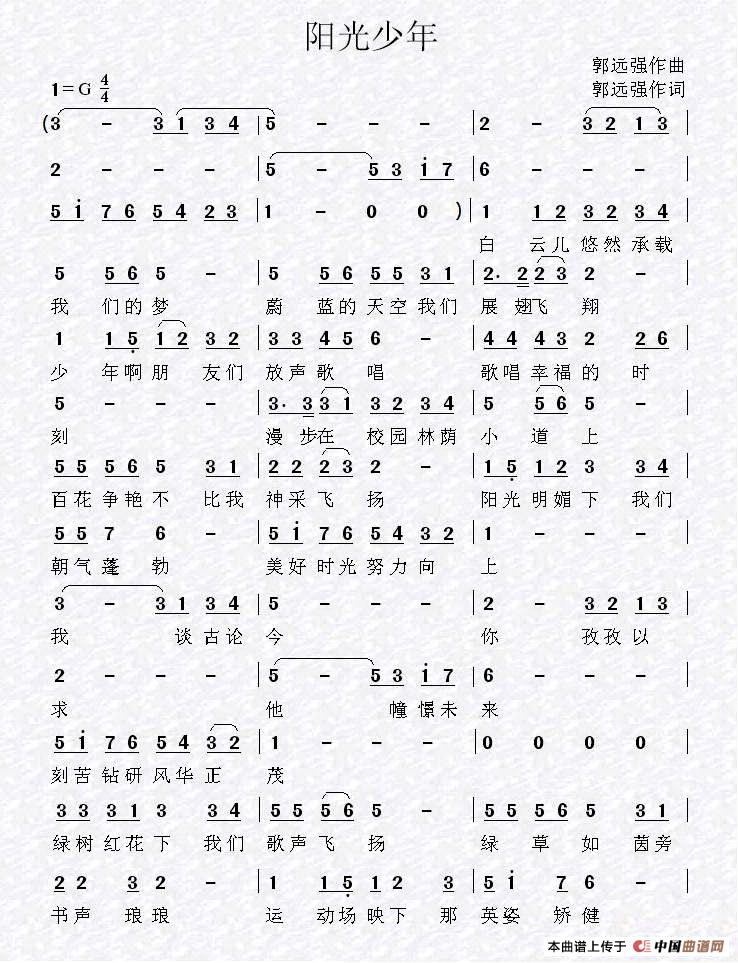 阳光少年
郭远强作曲
1=G 4/4
郭远强作词
(3 - 3 1 3 4 | 5 - - - | 2 - 3 2 1 3 |
2 - - - | 5 - 5 3 i 7 | 6 - - - |
5 i 7 6 5 4 2 3 | 1 - 0 0 ) | 1 1 2 3 2 3 4 |
白 云儿悠然承载
5 5 6 5 - | 5 5 6 5 5 3 1 | 2· 2 2 3 2 - |
我 们的梦 蔚 蓝的天空我们 展 翅飞 翔
1 1 5 1 2 3 2 | 3 3 4 5 6 - | 4 4 4 3 2 2 6 |
少 年啊朋 友们 放声歌 唱 歌唱幸福的 时
5 - - - | 3· 3 3 1 3 2 3 4 | 5 5 6 5 - |
刻 漫 步在 校园林荫 小 道 上
5 5 5 6 5 3 1 | 2 2 2 3 2 - | 1 5 1 2 3 3 4 |
百花争艳不 比我 神采飞 扬 阳光明媚下 我们
5 5 7 6 - | 5 i 7 6 5 4 3 2 | 1 - - - |
朝气蓬 勃 美好时光努力向 上
3 - 3 1 3 4 | 5 - - - | 2 - 3 2 1 3 |
我 谈古论 今 你 孜孜以
2 - - - | 5 - 5 3 i 7 | 6 - - - |
求 他 幢憬未 来
5 i 7 6 5 4 3 2 | 1 - - - | 0 0 0 0 |
刻苦钻研风华正 茂
3 3 3 1 3 3 4 | 5 5 5 6 5 - | 5 5 5 6 5 3 1 |
绿树红花下 我们 歌声飞 扬 绿 草 如 茵旁
2 2 3 2 - | 1 1 5 2 3 | 5 i 7 6 - |
书声 琅琅 运 动场映下 那 英姿 矫健
本曲谱上传于 中国曲谱网